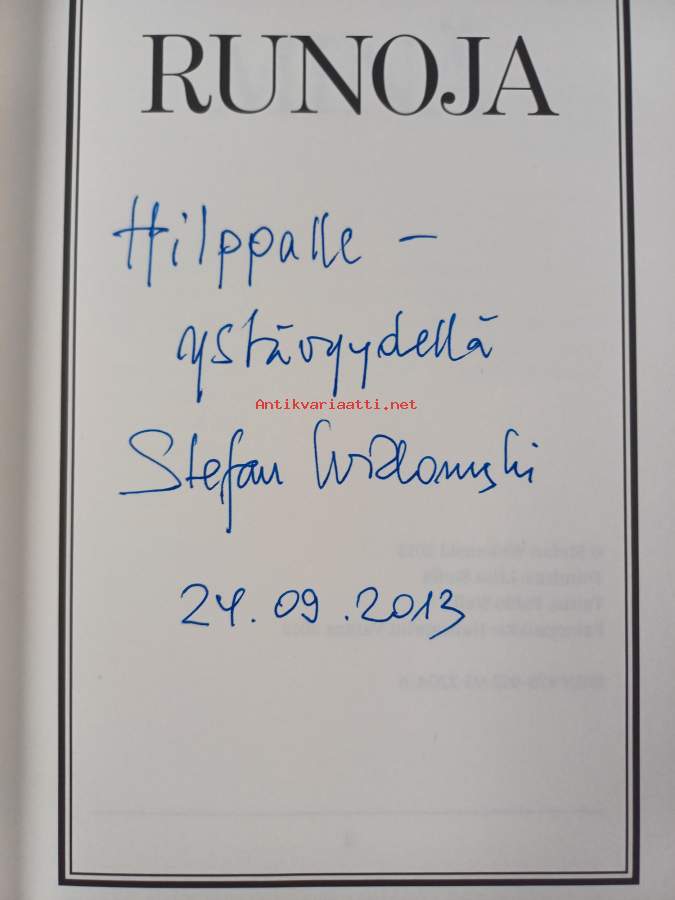 RUNOJA
Hilppalle –
ystävyydellä
Antikvariaatti.net
Stefan Widomski
24.09.2013